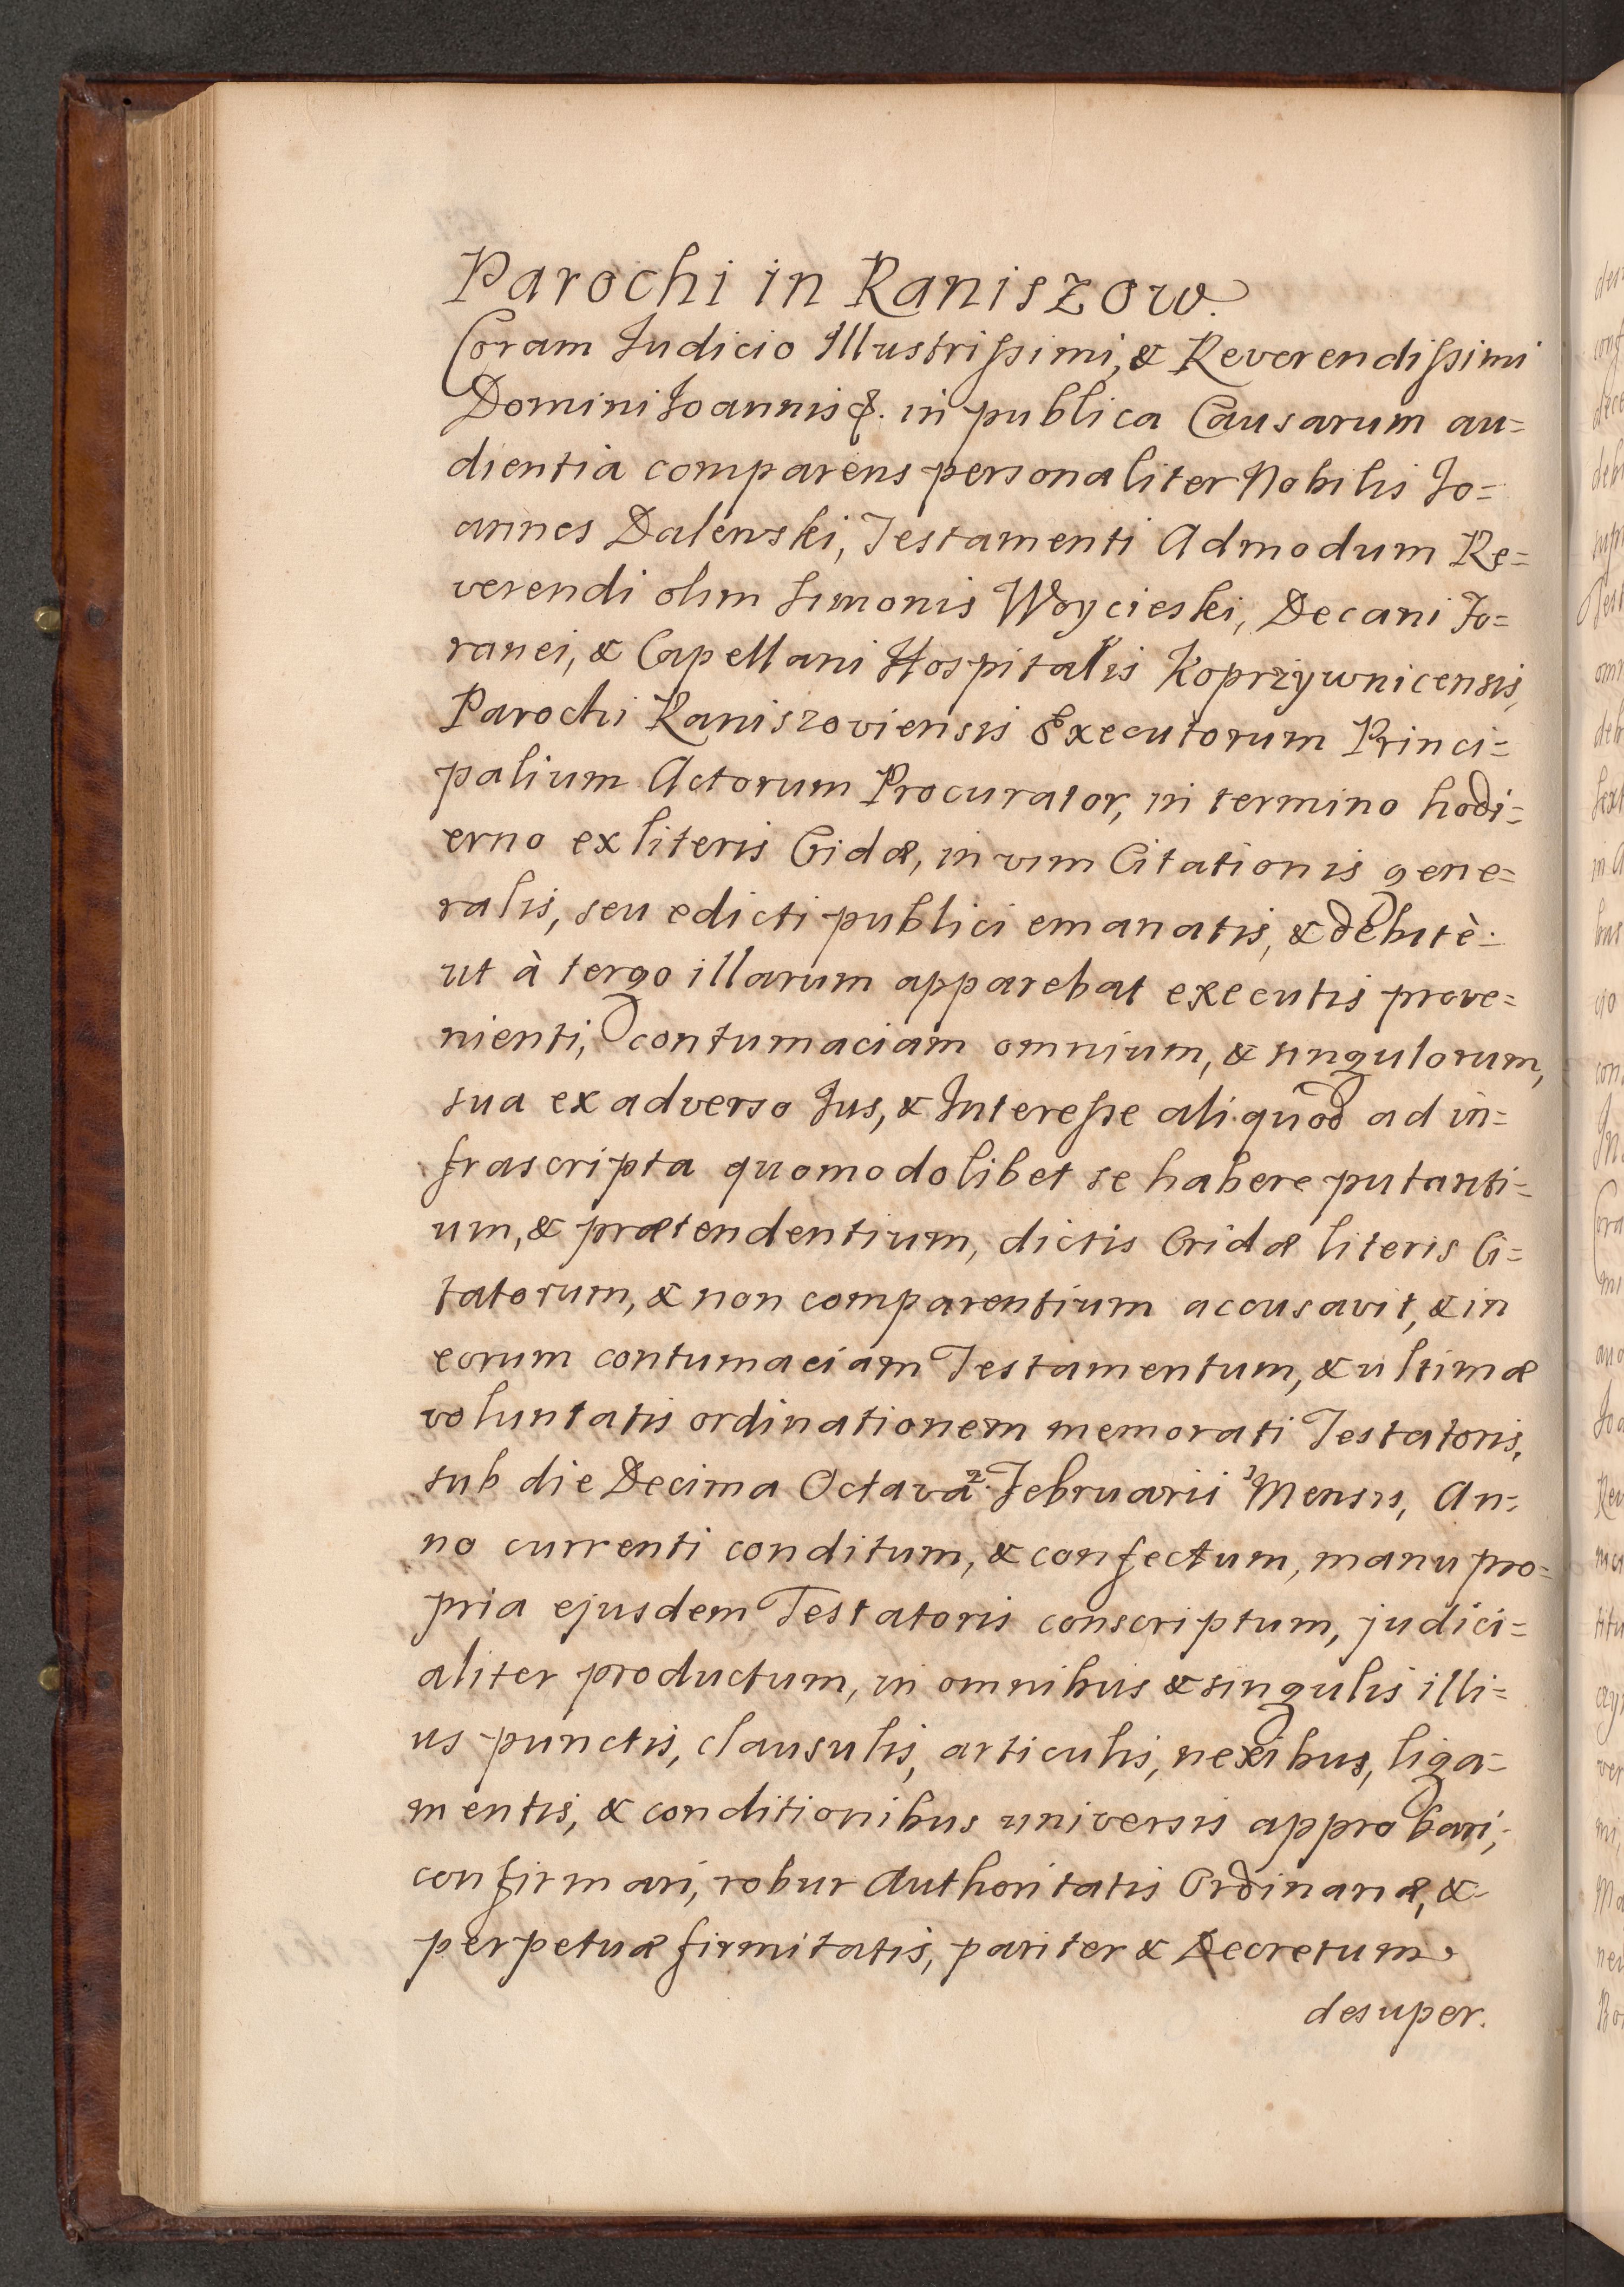 Parochi in Raniszow.
Coram Judicio Illustrissimi, & Reverendissimi
Domini Joannis &. in publica Causarum au=
dientia comparens personaliter Nobilis Jo=
annes Dalenski, Testamenti Admodum Re=
verendi olim Simonis Woycieski, Decani Fo=
ranei, & Capellani Hospitalis Koprzywnicensis,
Parochi Raniszoviensis Executorum Princi=
palium Actorum Procurator, in termino hodi=
erno ex literis Cridæ, in vim Citationis gene=
ralis, seu edicti publici emanatis, & debitè
ut à tergo illarum apparebat executis prove=
nienti, contumaciam omnium, & singulorum,
sua ex adverso Jus, & Interesse aliquod ad in=
frascripta quomodolibet se habere putanti=
um, & prætendentium, dictis Cridæ literis Ci=
tatorum, & non comparentium accusavit, & in
eorum contumaciam Testamentum, & ultimæ
voluntatis ordinationem memorati Testatoris,
sub die Decima Octava Februarii Mensis, An=
no currenti conditum, & confectum, manu pro=
pria ejusdem Testatoris conscriptum, judici=
aliter productum, in omnibus & singulis illi=
us punctis, clausulis, articulis, nexibus, liga=
mentis, & conditionibus universis approbari,
confirmari, robur Authoritatis Ordinariæ, &
perpetuæ firmitatis, pariter & Decretum
desuper.